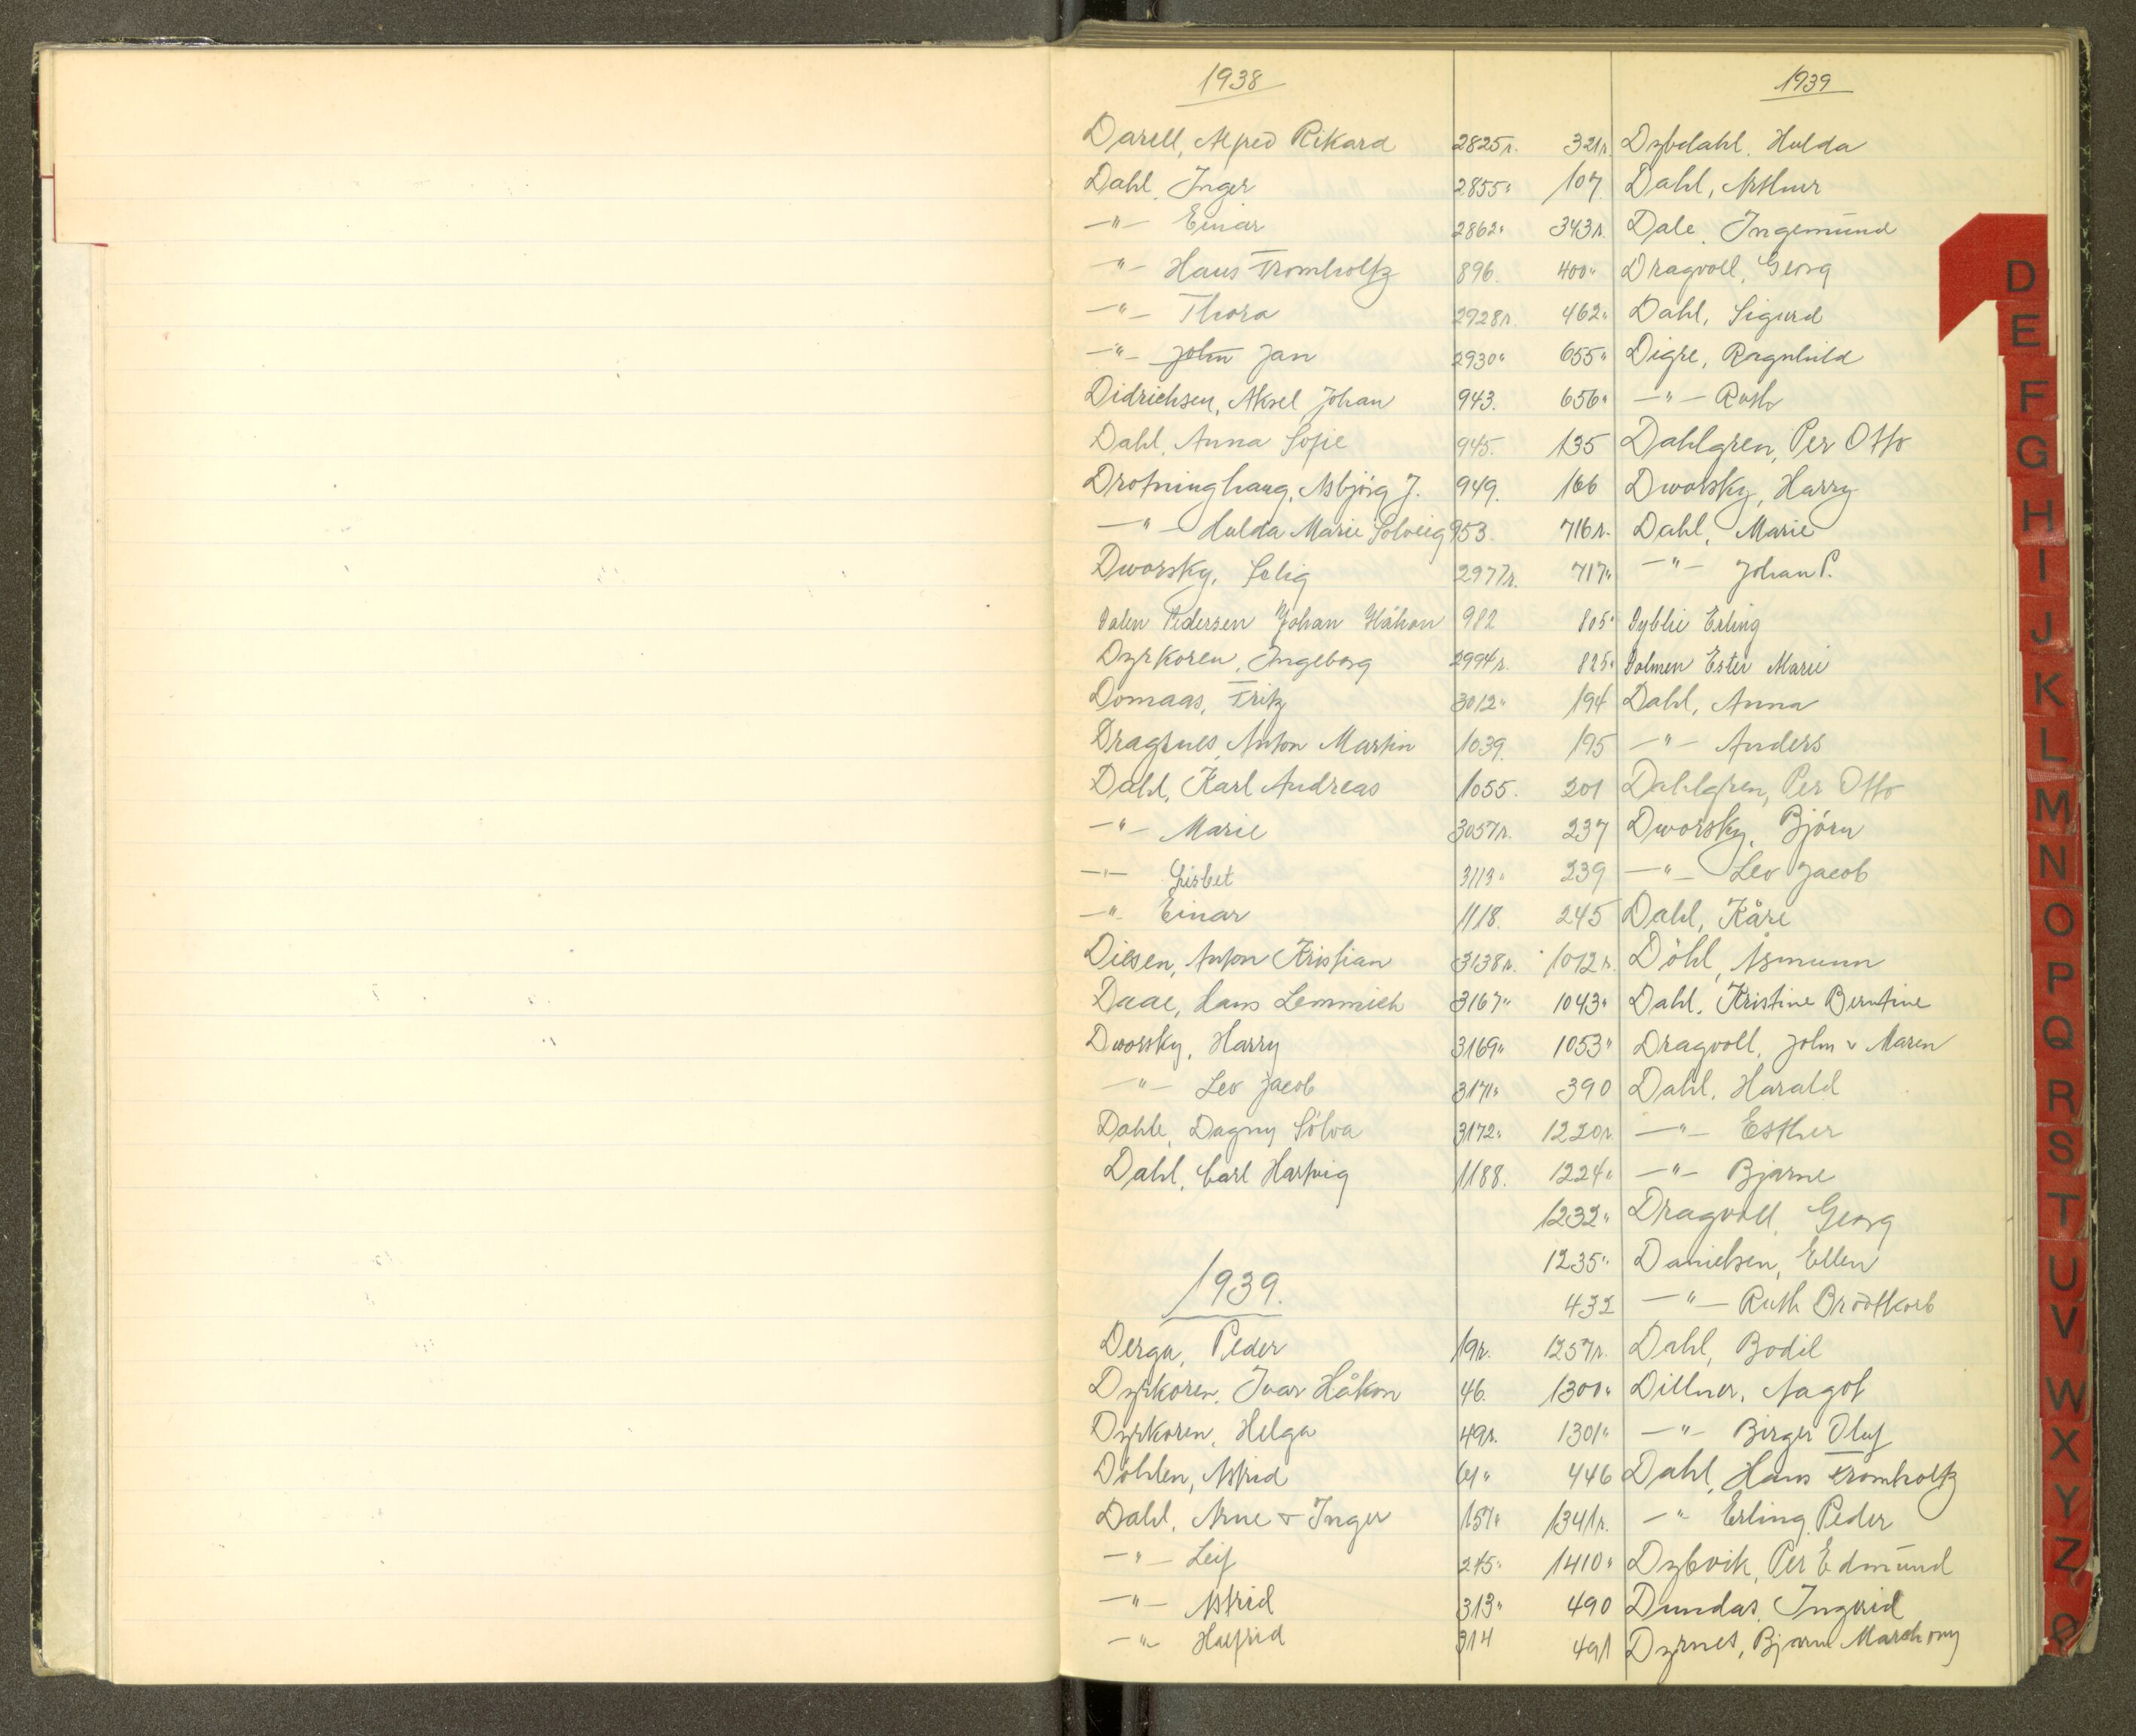 1938
Darell, Alfred Rikard 2825r.
Dahl, Inger 2855"
—"— Einar 2862"
—"— Hans Tromholtz 896.
—"— Thora 2928r.
—"— John Jan 2930"
Didrichsen, Aksel Johan 943.
Dahl, Anna Sofie 945.
Drotninghaug, Asbjörg J. 949.
—"— Hulda Marie Solveig 953.
Dworsky, Selig 2977r.
Dalen Pedersen Johan Håkon 982
Dyrkoren, Ingeborg 2994r.
Domaas, Fritz 3012"
Dragsnes, Anton Martin 1039.
Dahl, Karl Andreas 1055.
—"— Marie 3057r.
—"— Lisbet 3113"
—"— Einar 1118.
Diesen, Anton Kristian 3138r.
Daae, Hans Lemmich 3167"
Dworsky, Harry 3169"
—"— Leo Jacob 3171"
Dahle, Dagny Sölva 3172"
Dahl, Carl Hartvig 1188.
1939.
Derga, Peder 19r.
Dyrkoren, Ivar Håkon 46.
Dyrkoren, Helga 49r.
Döhlen, Astrid 61"
Dahl, Arne & Inger 157"
—"— Leif 245"
—"— Astrid 313"
—"— Halfrid 314
1939
321r. Dybdahl, Hulda
107. Dahl, Arthur
343r. Dale, Ingemund
400" Dragvoll, Georg
462" Dahl, Sigurd
655" Digre, Ragnhild
656" —"— Ruth
135 Dahlgren, Per Otto
166 Dworsky, Harry
716r. Dahl, Marie
717" —"— Johan P.
805" Dyblie Erling
825" Dolmen Ester Marie
194 Dahl, Anna
195 —"— Anders
201 Dahlgren, Per Otto
237 Dworsky, Björn
239 —"— Leo Jacob
245 Dahl, Kåre
1012r. Döhl, Åsmunn
1043" Dahl, Kristine Berntine
1053" Dragvoll, John & Maren
390 Dahl, Harald
1220r. —"— Esther
1224" —"— Bjarne
1232" Dragvoll, Georg
1235" Danielsen, Ellen
432 —"— Ruth Brodtkorb
1257r. Dahl, Bodil
1300" Dillner, Aagot
1301" —"— Birger Oluf
446 Dahl, Hans Tromholtz
1341r. —"— Erling Peder
1410" Dybvik, Per Edmund
490 Dundas, Ingrid
491 Dyrnes, Bjarne
D
E
F
G
H
I
J
K
L
M
N
O
P
Q
R
S
T
U
V
W
X
Y
Z
Ø